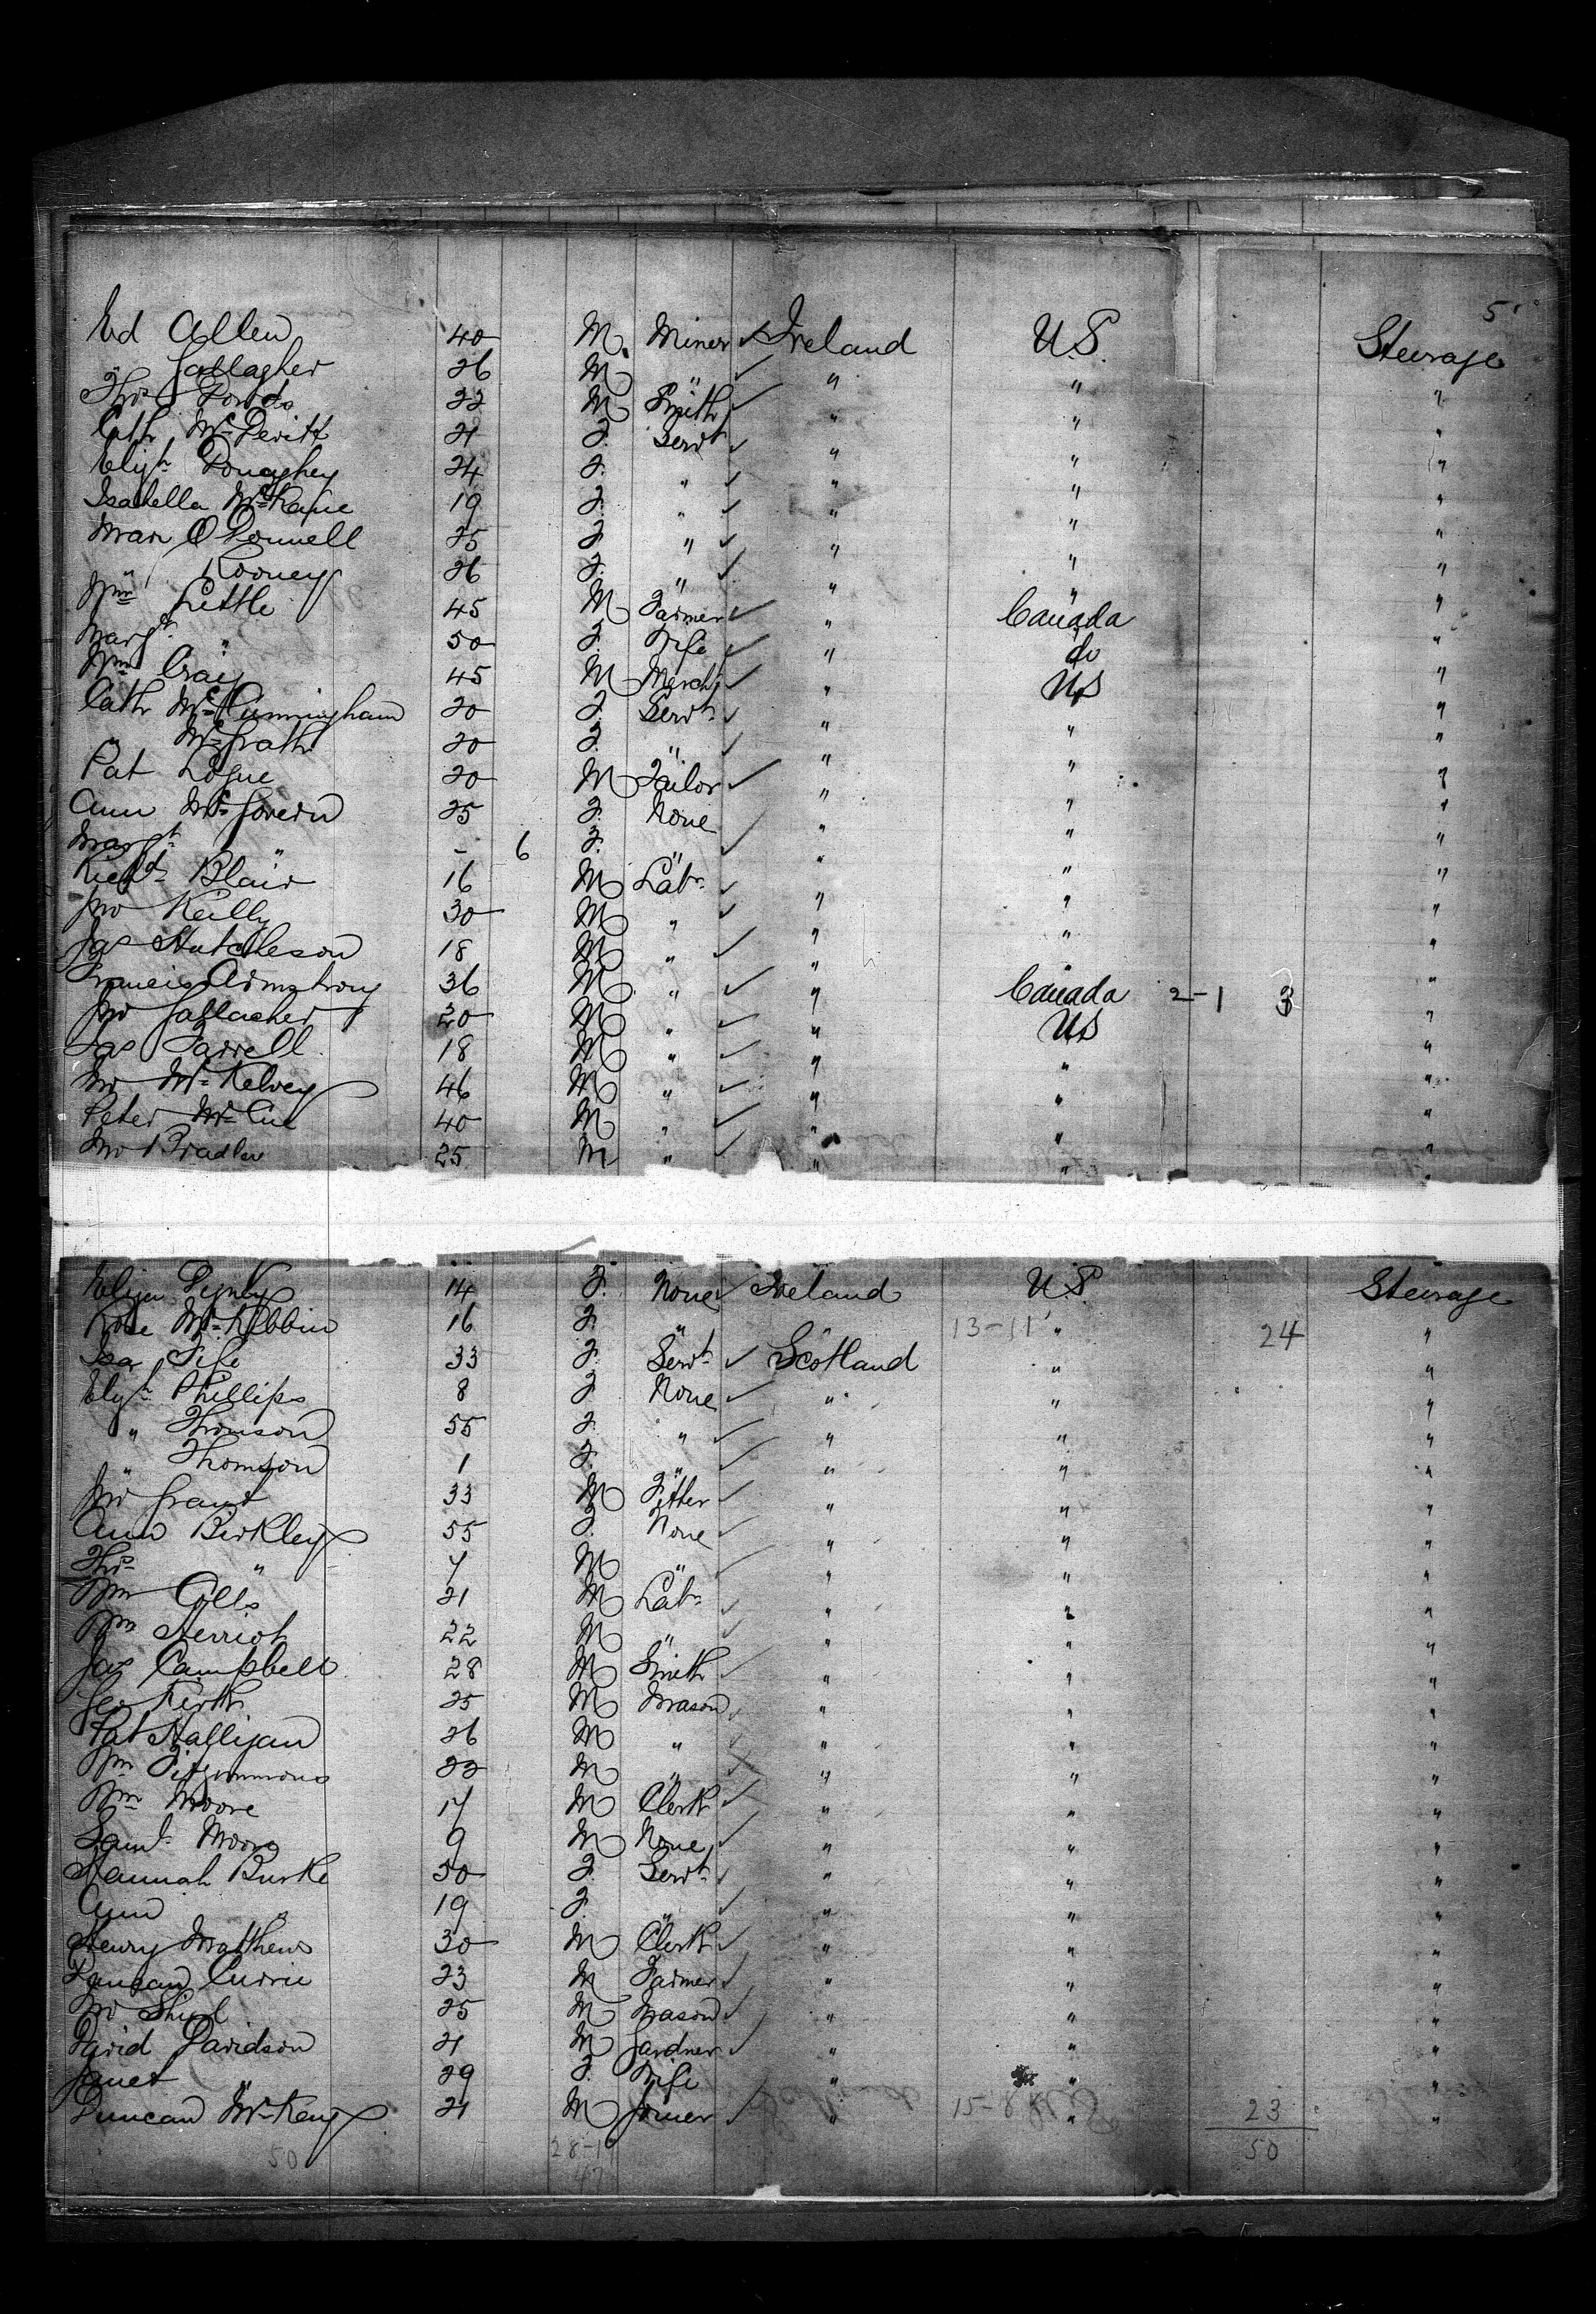 5
Ed Allen 40 M Miner ✓ Ireland U.S. Steerage
" Gallagher 26 M " ✓ " " "
Thos 22 M Smith ✓ " " "
Cath McDevitt 21 F. Servt ✓ " " "
Elizth Donaghey 24 F. " ✓ " " "
Isabella McKane 19 F. " ✓ " " "
Mary O'Donnell 25 F. " ✓ " " "
" Rooney 26 F. " ✓ " " "
Wm Little 45 M Farmer ✓ " Canada "
Margt " 50 F. Wife ✓ " do "
Wm Craig 45 M Mercht ✓ " US "
Cath McCunningham 20 F. Servt ✓ " " "
" McGrath 20 F. " ✓ " " "
Pat Logue 20 M Tailor ✓ " " "
Ann McGovern 25 F. None " " "
Margt " - 6 F. " ✓ " " "
Richd Blair 16 M Labr ✓ " " "
Jno Keilly 30 M " ✓ " " "
Jas Hutcheson 18 M " ✓ " " "
Francis Armstrong 36 M " ✓ " Canada 2-1 3 "
Jno Gallagher 20 M " ✓ " US "
Jas Farrell 18 M " ✓ " " "
Jno McKelvey 46 M " ✓ " " "
Peter McCue 40 M " ✓ " " "
Jno Bradley 25 M " ✓ " " "
Eliza 14 F. None ✓ Ireland U.S. Steerage
Rose McKibbin 16 F. " 13-11 " 24 "
Isa Fife 33 F. Servt ✓ Scotland " "
Elizth Phillips 8 F. None ✓ " " "
" Thomson 55 F. " ✓ " " "
" Thomson 1 F. " ✓ " " "
Jno Grant 33 M Fitter ✓ " " "
Ann Berkley 55 F. None ✓ " " "
Thos " 7 M " ✓ " " "
Wm 21 M Labr ✓ " " "
Wm Herriot 22 M " ✓ " " "
Jas Campbell 28 M Smith ✓ " " "
Geo Kirk 25 M Mason ✓ " " "
Pat Halligan 26 M " ✓ " " "
Wm Fitzsimmons 22 M " " " "
Wm Moore 17 M Clerk ✓ " " "
Saml Moore 9 M None ✓ " " "
Hannah Burke 50 F. Servt ✓ " " "
Ann " 19 F. " ✓ " " "
Henry Matthews 30 M Clerk ✓ " " "
Duncan Currie 23 M Farmer ✓ " " "
Jno 25 M Mason ✓ " " "
David Davidson 21 M Gardner ✓ " " "
Janet " 29 F. Wife " " "
Duncan McKenz 21 M Joiner ✓ " 15-8 " 23 "
50 28-19 50
47